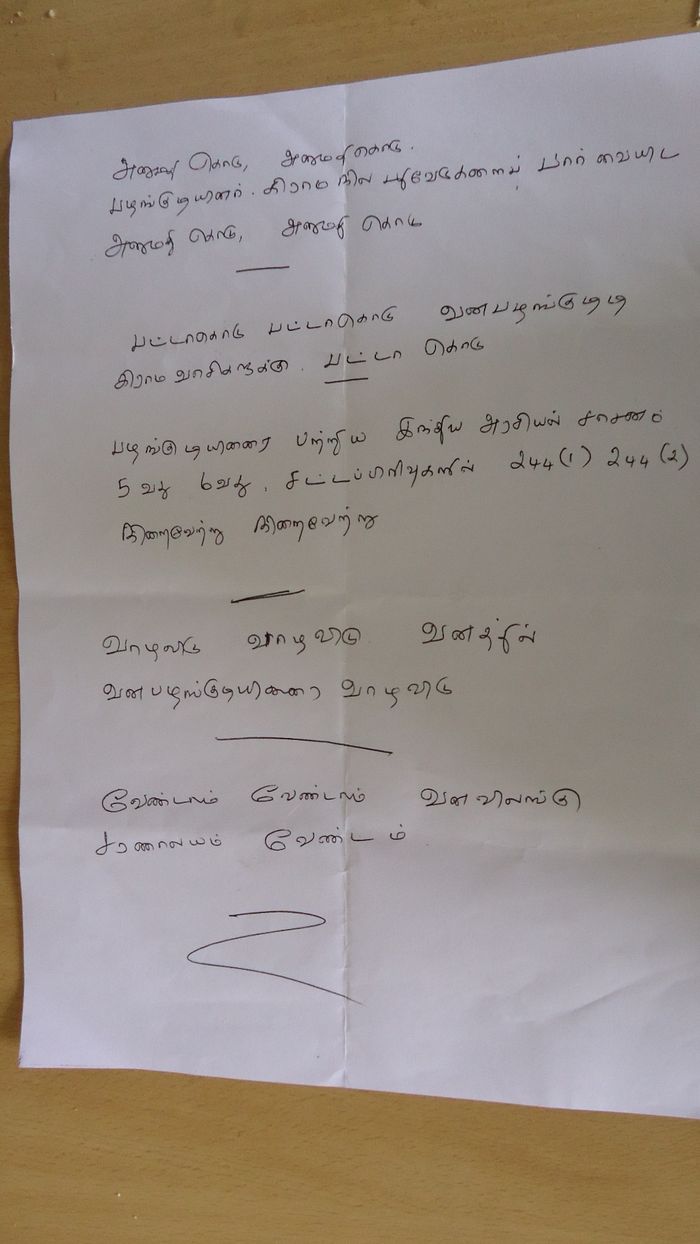 அனுமதி கொடு, அனுமதி கொடு.
பழங்குடியினர். கிராம நில பதிவேடுகளைப் பார் வையிட
அனுமதி கொடு, அனுமதி கொடு
பட்டாகொடு பட்டாகொடு வனபழங்குடி
கிராம வாசிகளுக்கு. பட்டா கொடு
பழங்குடியினரை பற்றிய இந்திய அரசியல் சாசனம்
5 வது 6வது. சட்டப்பிரிவுகளில் 244(1) 244(2)
நிறைவேற்று நிறைவேற்று
வாழவிடு வாழ விடு வனத்தில்
வன பழங்குடியினரை வாழ விடு
வேண்டாம் வேண்டாம் வன விலங்கு
சரணாலயம் வேண்டம்